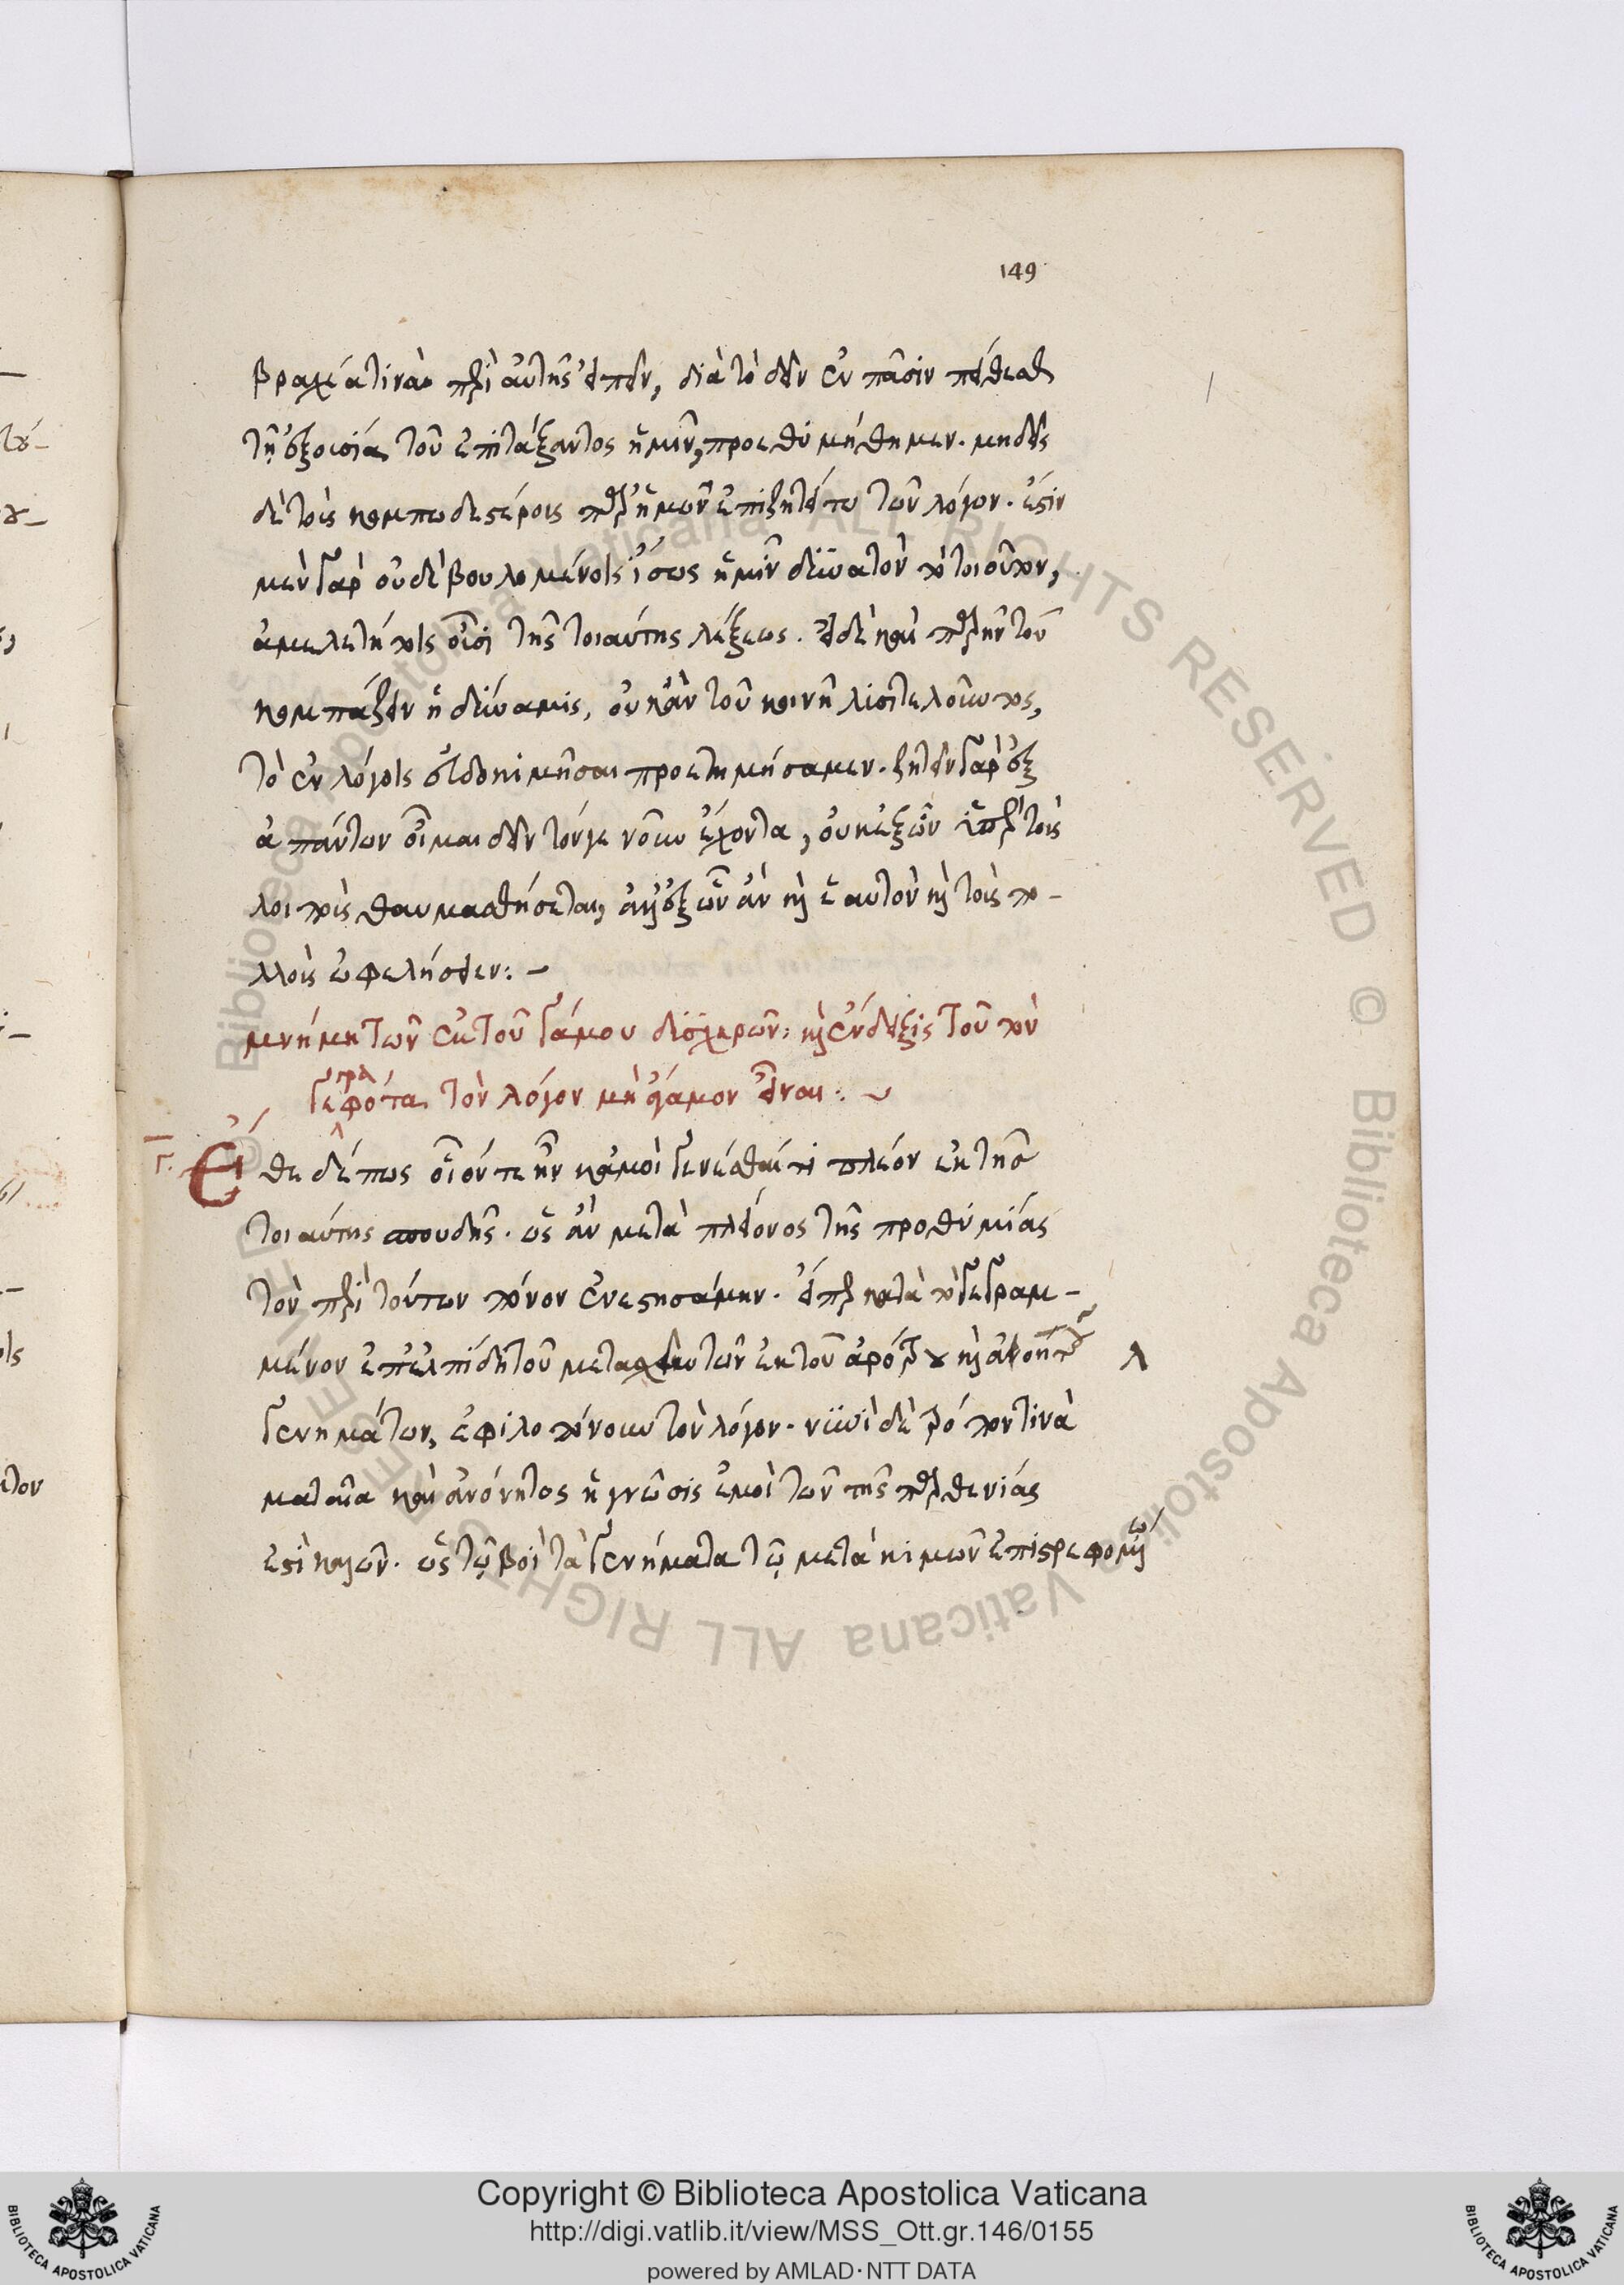 149
βραχέα τινὰ περὶ αὐτῆς εἰπεῖν, διὰ τὸ δεῖν ἐν πᾶσιν πείθεσθαι
τῇ ἐξουσίᾳ τοῦ ἐπιτάξαντος ἡμῖν, προεθυμήθημεν. μηδεὶς
δὲ τοὺς κομπωδεστέρους παρ' ἡμῶν ἐπιζητείτω τῶν λόγων. ἔστιν
μὲν γὰρ οὐδὲ βουλομένοις ἴσως ἡμῖν δυνατὸν τὸ τοιοῦτον,
ἀμελετήτοις οὖσι τῆς τοιαύτης λέξεως. εἰ δὲ καὶ παρῆν τοῦ
κομπάζειν ἡ δύναμις, οὐκ ἂν τοῦ κοινῇ λυσιτελοῦντος,
τὸ ἐν λόγοις εὐδοκιμῆσαι προετιμήσαμεν. ζητεῖν γὰρ ἐξ
ἁπάντων οἶμαι δεῖν τόν γε νοῦν ἔχοντα, οὐκ ἐξ ὧν ὑπὲρ τοὺς
λοιποὺς θαυμασθήσεται, ἀλλ' ἐξ ὧν ἂν καὶ ἑαυτὸν καὶ τοὺς πο-
λλοὺς ὠφελήσειεν: -
μνήμη τῶν ἐκ τοῦ γάμου δυσχερῶν: καὶ ἔνδειξις τοῦ τὸν
γεγραφότα τὸν λόγον μὴ ἄγαμον εἶναι: -
Γ. Εἴθε δέ πως οἷόν τε ἦν κἀμοὶ γενέσθαι τι πλέον ἐκ τῆς
τοιαύτης σπουδῆς. ὡς ἂν μετὰ πλείονος τῆς προθυμίας
τὸν περὶ τούτων πόνον ἐνεστησάμην. εἴπερ κατὰ τὸ γεγραμ-
μένον ἐπ' ἐλπίδι τοῦ μετασχεῖν τῶν ἐκ τοῦ ἀρότρου καὶ
γενημάτων, ἐφιλοπόνουν τὸν λόγον. νυνὶ δὲ τρόπον τινὰ
ματαία καὶ ἀνόνητος ἡ γνῶσις ἐμοὶ τῶν τῆς παρθενίας
ἐστὶ καλῶν. ὡς τῷ βοῒ τὰ γενήματα τῷ μετὰ κημῶν ἐπιστρεφομένῳ
Copyright © Biblioteca Apostolica Vaticana
http://digi.vatlib.it/view/MSS_Ott.gr.146/0155
powered by AMLAD·NTT DATA
BIBLIOTECA APOSTOLICA VATICANA
BIBLIOTECA APOSTOLICA VATICANA